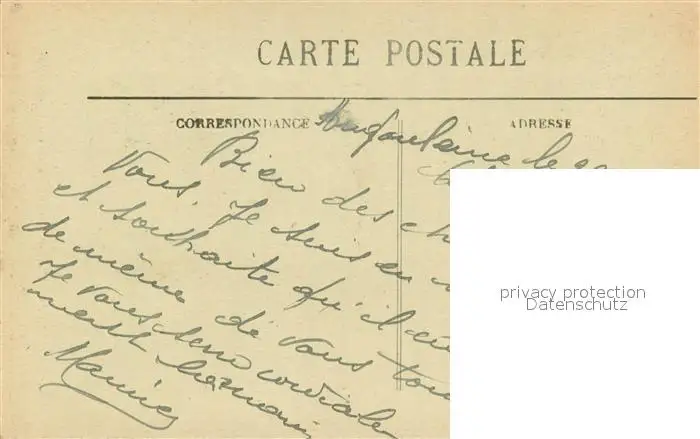 CARTE POSTALE
CORRESPONDANCE
ADRESSE
Angoulême le
Bien des
Vous. Je suis en
et souhaite qu'il en
de même de Vous
Je Vous serre cordiale
ment la main
privacy protection
Datenschutz